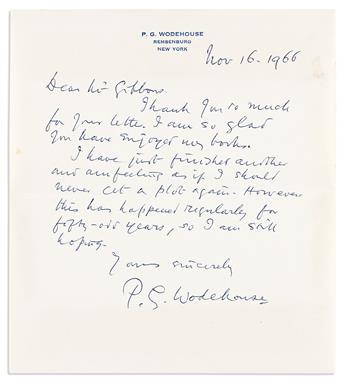 P. G. WODEHOUSE
REMSENBURG
NEW YORK
Nov 16. 1966
Dear Mr Gibbons.
Thank you so much
for your letter. I am so glad
you have enjoyed my books.
I have just finished another
and am feeling as if I should
never get a plot again. However
this has happened regularly for
fifty-odd years, so I am still
hoping.
Yours sincerely
P. G. Wodehouse